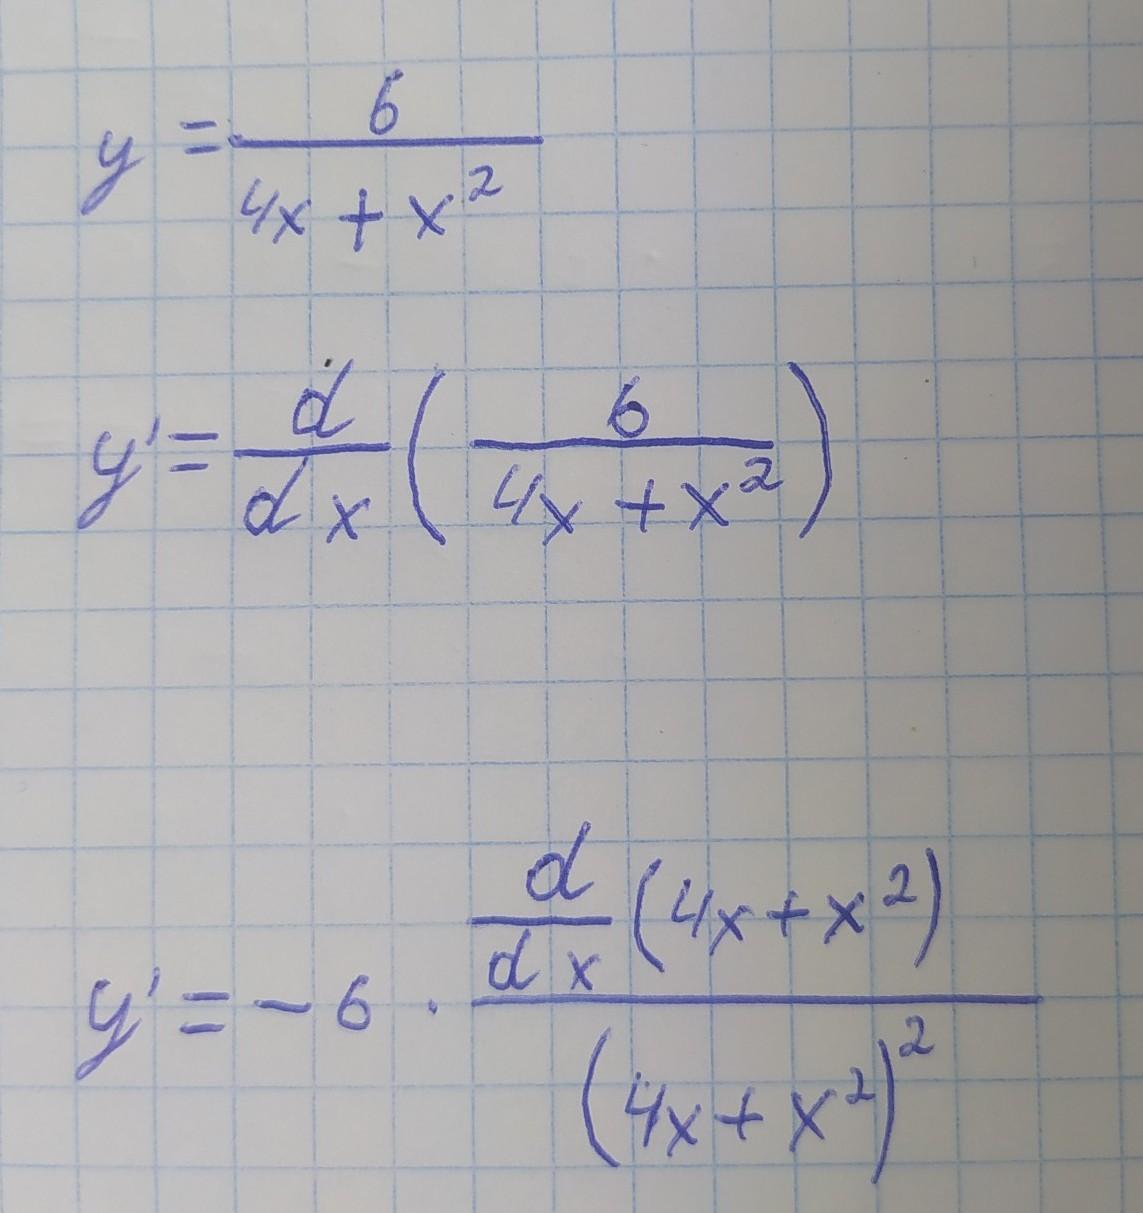 y = 6 / (4x + x²)
y' = d/dx (6 / (4x + x²))
y' = - 6 · (d/dx (4x + x²)) / (4x + x²)²